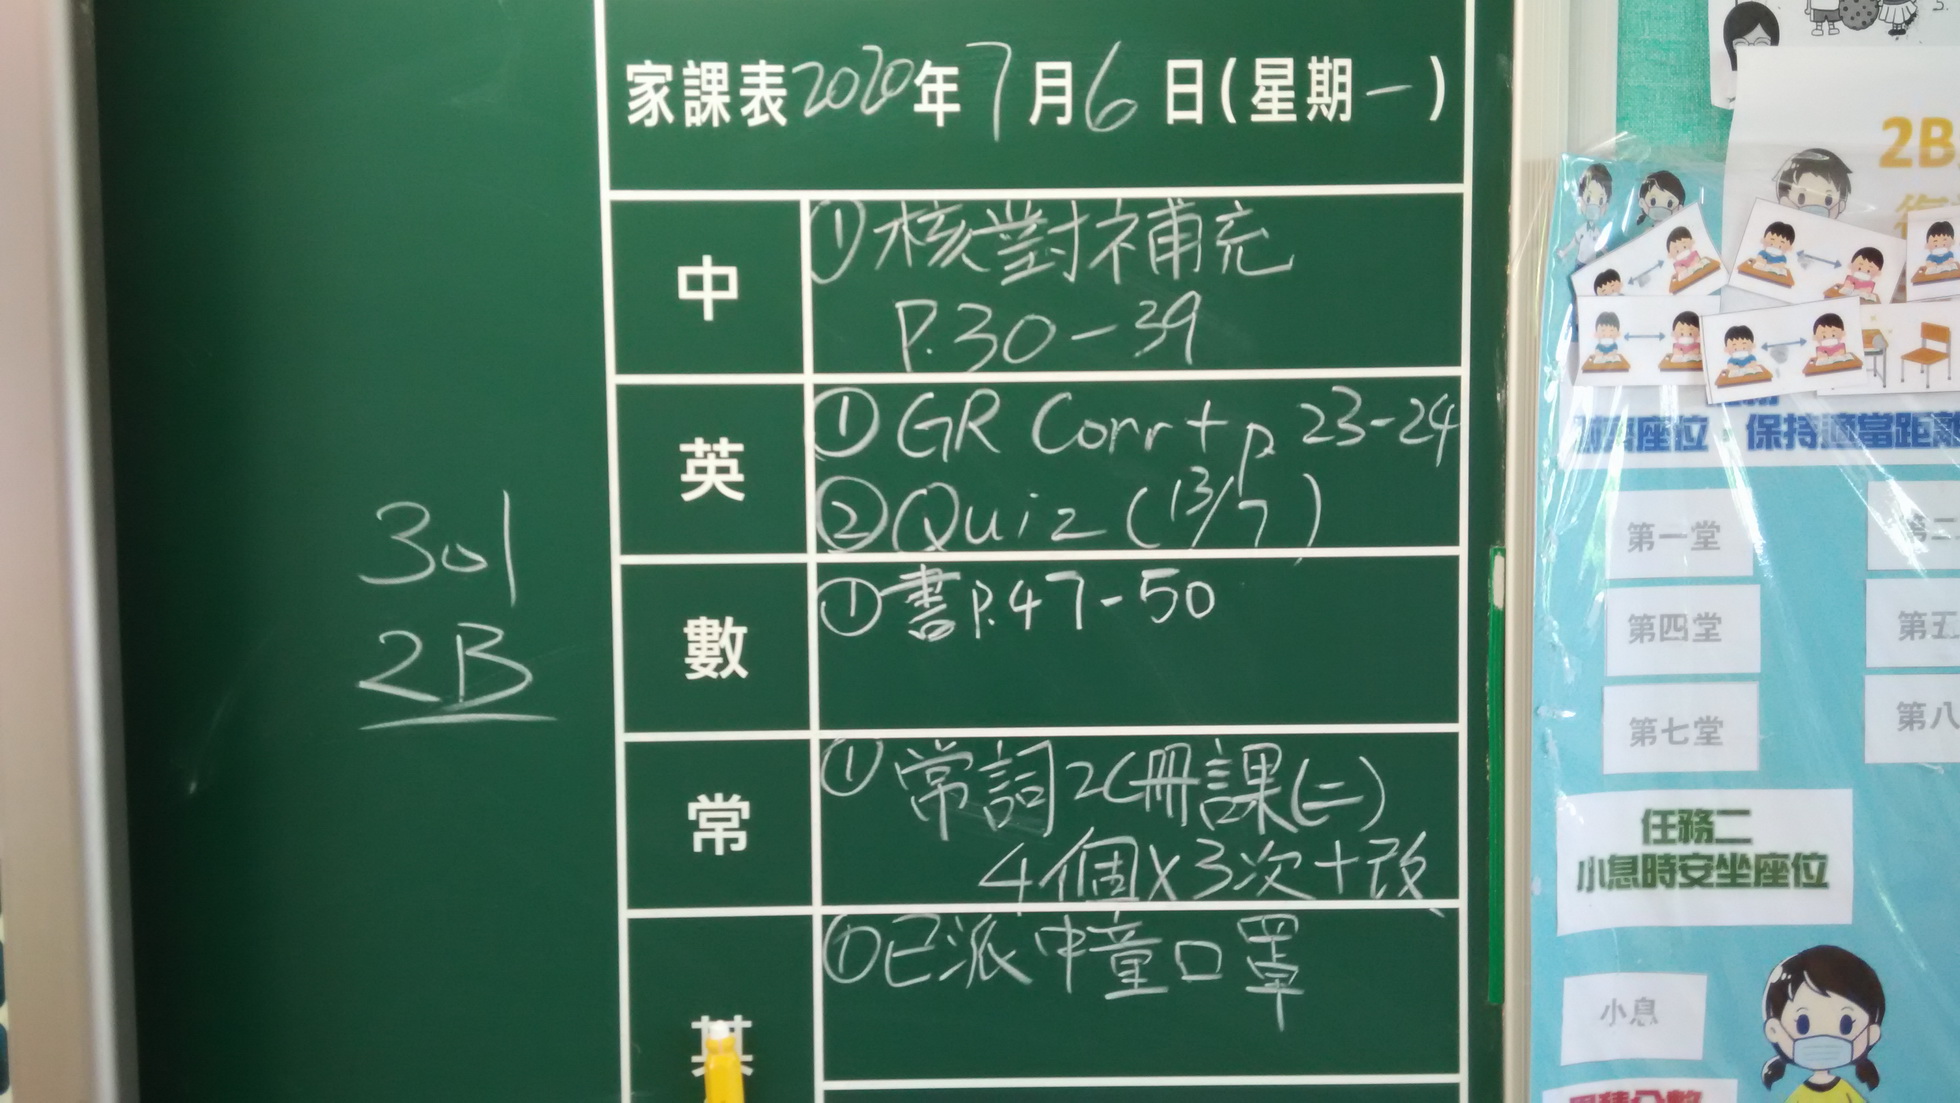 家課表2020年7月6日(星期一)
中
①核對補充
P.30-39
英
①GR Corr + p.23-24
②Quiz (13/7)
數
①書P.47-50
常
①常詞2C冊課(二)
4個X3次+改
①已派中童口罩
301
2B
2B
座位，保持適當距離
第一堂
第四堂
第五
第七堂
第八
任務二
小息時安坐座位
小息